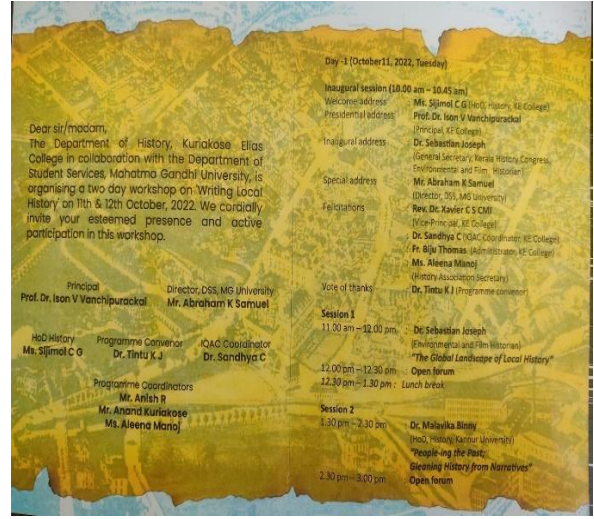 Dear sir/madam,
The Department of History, Kuriakose Elias
College in collaboration with the Department of
Student Services, Mahatma Gandhi University, is
organising a two day workshop on 'Writing Local
History' on 11th & 12th October, 2022. We cordially
invite your esteemed presence and active
participation in this workshop.
Principal
Prof. Dr. Ison V Vanchipurackal
Director, DSS, MG University
Mr. Abraham K Samuel
HoD History
Ms. Sijimol C G
Programme Convenor
Dr. Tintu K J
IQAC Coordinator
Dr. Sandhya C
Programme Coordinators
Mr. Anish R
Mr. Anand Kuriakose
Ms. Aleena Manoj
Day -1 (October11, 2022, Tuesday)
Inaugural session (10.00 am – 10.45 am)
Welcome address : Ms. Sijimol C G (HoD, History, KE College)
Presidential address : Prof. Dr. Ison V Vanchipurackal
(Principal, KE College)
Inaugural address : Dr. Sebastian Joseph
(General Secretary, Kerala History Congress,
Environmental and Film Historian)
Special address : Mr. Abraham K Samuel
(Director, DSS, MG University)
Felicitations : Rev. Dr. Xavier C S CMI
(Vice-Principal, KE College)
: Dr. Sandhya C (IQAC Coordinator, KE College)
: Fr. Biju Thomas (Administrator, KE College)
Ms. Aleena Manoj
(History Association Secretary)
Vote of thanks : Dr. Tintu K J (Programme convenor)
Session 1
11.00 am – 12.00 pm : Dr. Sebastian Joseph
(Environmental and Film Historian)
"The Global Landscape of Local History"
12.00 pm – 12.30 pm : Open forum
12.30 pm – 1.30 pm : Lunch break
Session 2
1.30 pm – 2.30 pm : Dr. Malavika Binny
(HoD, History, Kannur University)
"People-ing the Past;
Gleaning History from Narratives"
2.30 pm – 3.00 pm : Open forum